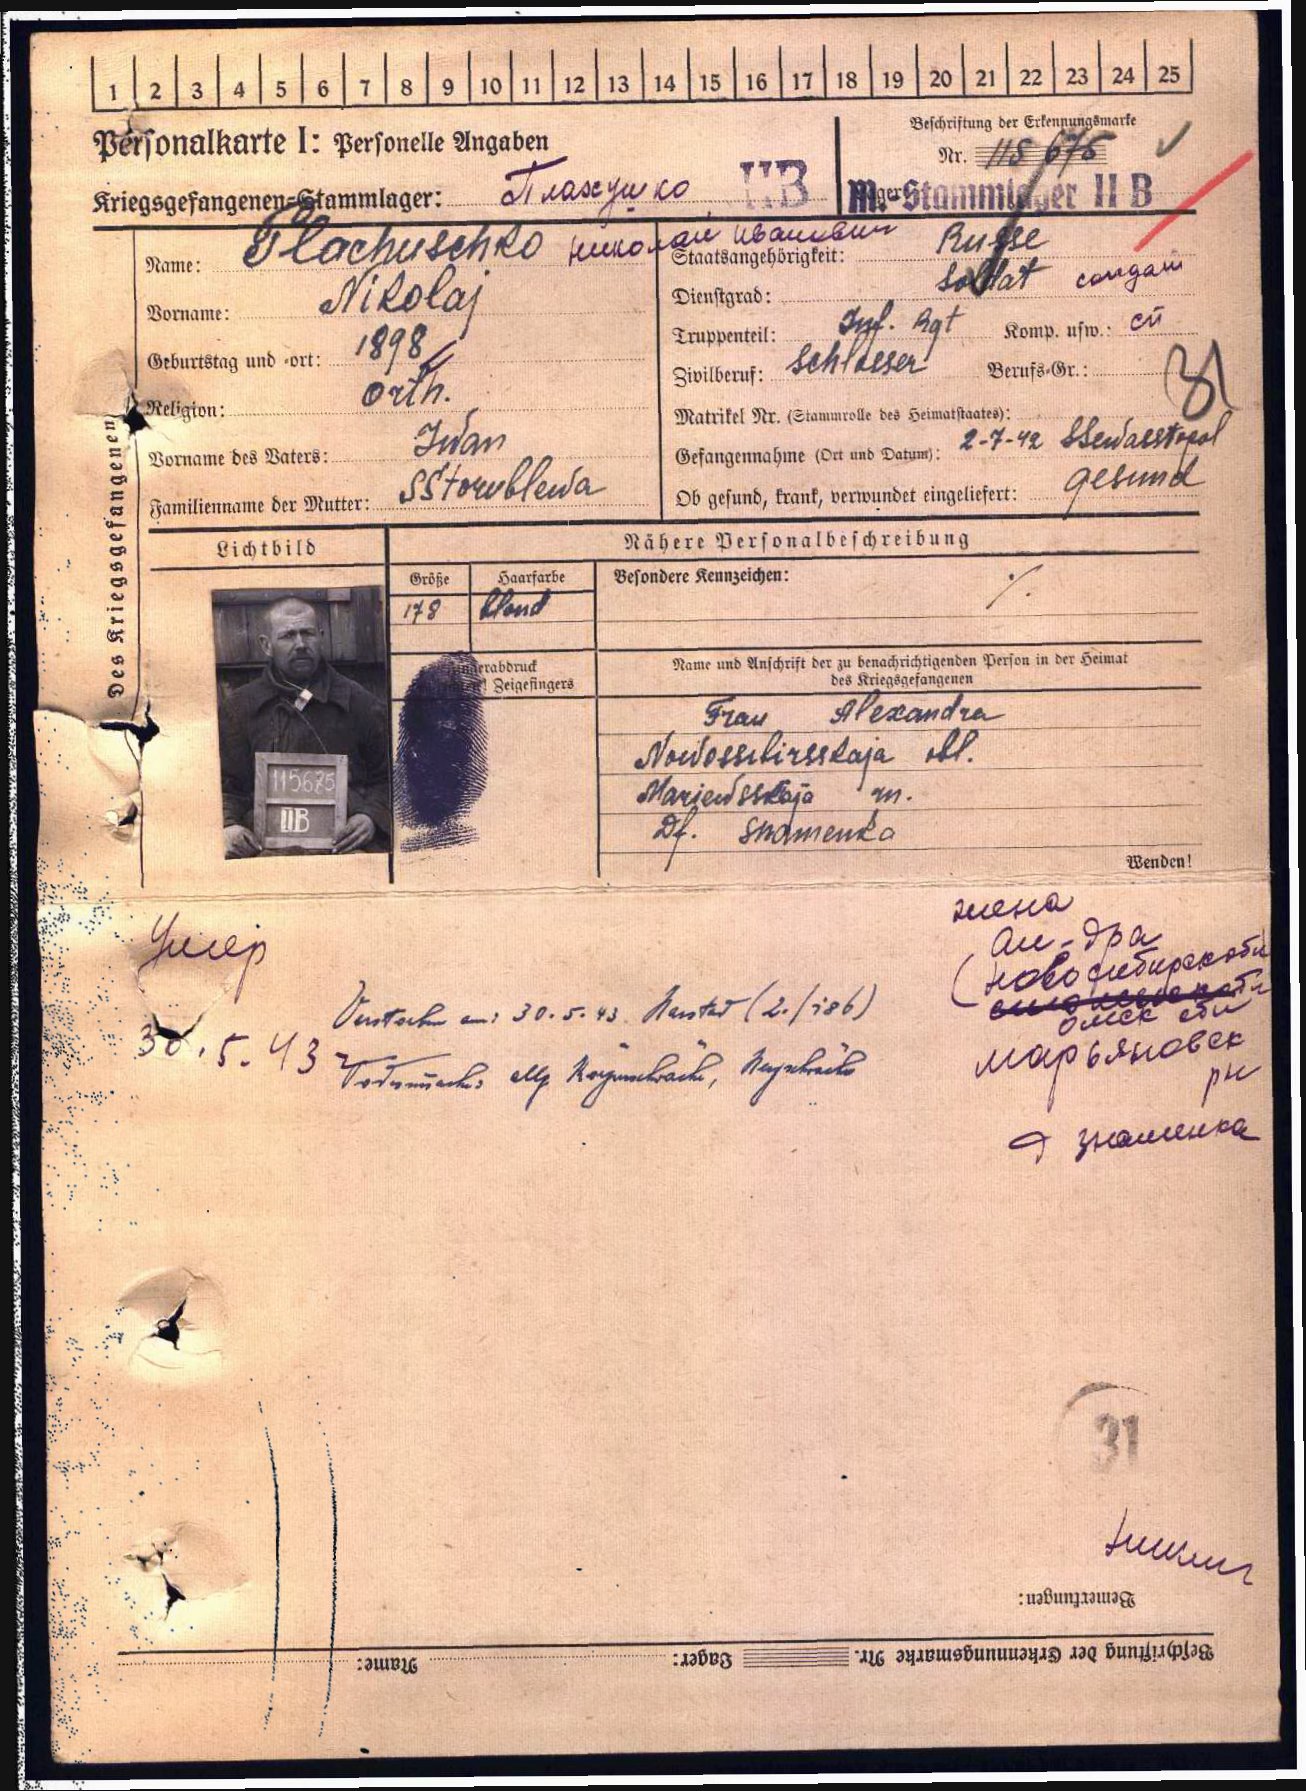 1 2 3 4 5 6 7 8 9 10 11 12 13 14 15 16 17 18 19 20 21 22 23 24 25
Personalkarte I: Personelle Angaben
Beschriftung der Erkennungsmarke
Nr. 115675
Kriegsgefangenen-Stammlager: Плахушко IIB
M.-Stammlager II B
Name: Plachuschko Николай Иванович
Vorname: Nikolaj
Geburtstag und -ort: 1898
Religion: orth.
Vorname des Vaters: Iwan
Familienname der Mutter: SStorublewa
Staatsangehörigkeit: Russe
Dienstgrad: Soldat солдат
Truppenteil: Inf. Rgt Komp. usw.: сп
Zivilberuf: Schlosser Berufs-Gr.:
Matrikel Nr. (Stammrolle des Heimatstaates):
Gefangennahme (Ort und Datum): 2-7-42 SSewasstopol
Ob gesund, krank, verwundet eingeliefert: gesund
31
Des Kriegsgefangenen
Lichtbild
Nähere Personalbeschreibung
Größe Haarfarbe Besondere Kennzeichen:
178 blond ./.
Fingerabdruck
Zeigefingers
115675
IIB
Name und Anschrift der zu benachrichtigenden Person in der Heimat
des Kriegsgefangenen
Frau Alexandra
Nowossibirsskaja obl.
Mariewsskaja m.
Df. Snamenka
Wenden!
жена
Ал-дра
(Новосибирск обл
Омск обл
Марьяновск
рн
д Знаменка
Умер
30.5.43 г
Verstorben am: 30.5.43
Todesursache: allg. Körperschwäche, Herzschwäche
31
Bemerkungen:
Beschriftung der Erkennungsmarke Nr. Lager: Name: